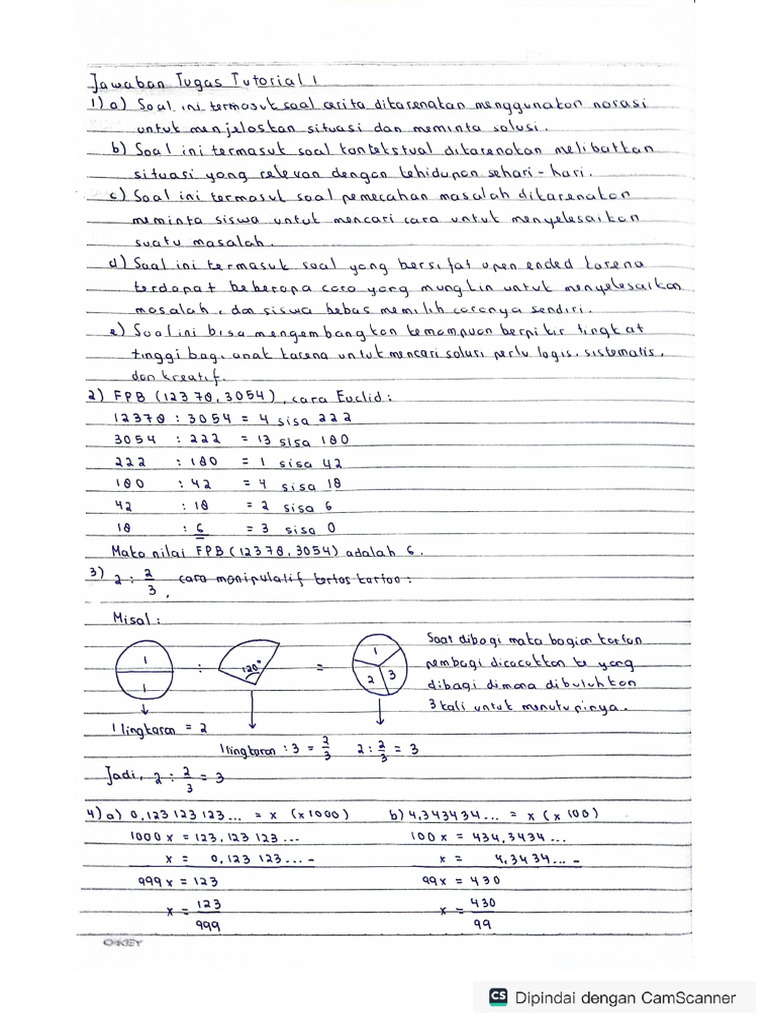 Jawaban Tugas Tutorial 1
1) a) Soal ini termasuk soal cerita dikarenakan menggunakan narasi
untuk menjelaskan situasi dan meminta solusi.
b) Soal ini termasuk soal kontekstual dikarenakan melibatkan
situasi yang relevan dengan kehidupan sehari-hari.
c) Soal ini termasuk soal pemecahan masalah dikarenakan
meminta siswa untuk mencari cara untuk menyelesaikan
suatu masalah.
d) Soal ini termasuk soal yang bersifat open ended karena
terdapat beberapa cara yang mungkin untuk menyelesaikan
masalah, dan siswa bebas memilih caranya sendiri.
e) Soal ini bisa mengembangkan kemampuan berpikir tingkat
tinggi bagi anak karena untuk mencari solusi perlu logis, sistematis,
dan kreatif.
2) FPB (12378, 3054), cara Euclid:
12378 : 3054 = 4 sisa 222
3054 : 222 = 13 sisa 180
222 : 180 = 1 sisa 42
180 : 42 = 4 sisa 18
42 : 18 = 2 sisa 6
18 : 6 = 3 sisa 0
Maka nilai FPB (12378, 3054) adalah 6.
3) 2 : 2/3, cara manipulatif kertas karton:
Misal:
1 1 : 120° = 1 2 3
Saat dibagi maka bagian karton
pembagi dicocokkan ke yang
dibagi dimana dibutuhkan
3 kali untuk menutupinya.
1 lingkaran = 2
1 lingkaran : 3 = 2/3 2 : 2/3 = 3
Jadi, 2 : 2/3 = 3
4) a) 0,123 123 123... = x (x 1000) b) 4,343434... = x (x 100)
1000 x = 123,123 123... 100 x = 434,3434...
x = 0,123 123... - x = 4,3434... -
999 x = 123 99 x = 430
x = 123/999 x = 430/99
O-KEY
CS Dipindai dengan CamScanner